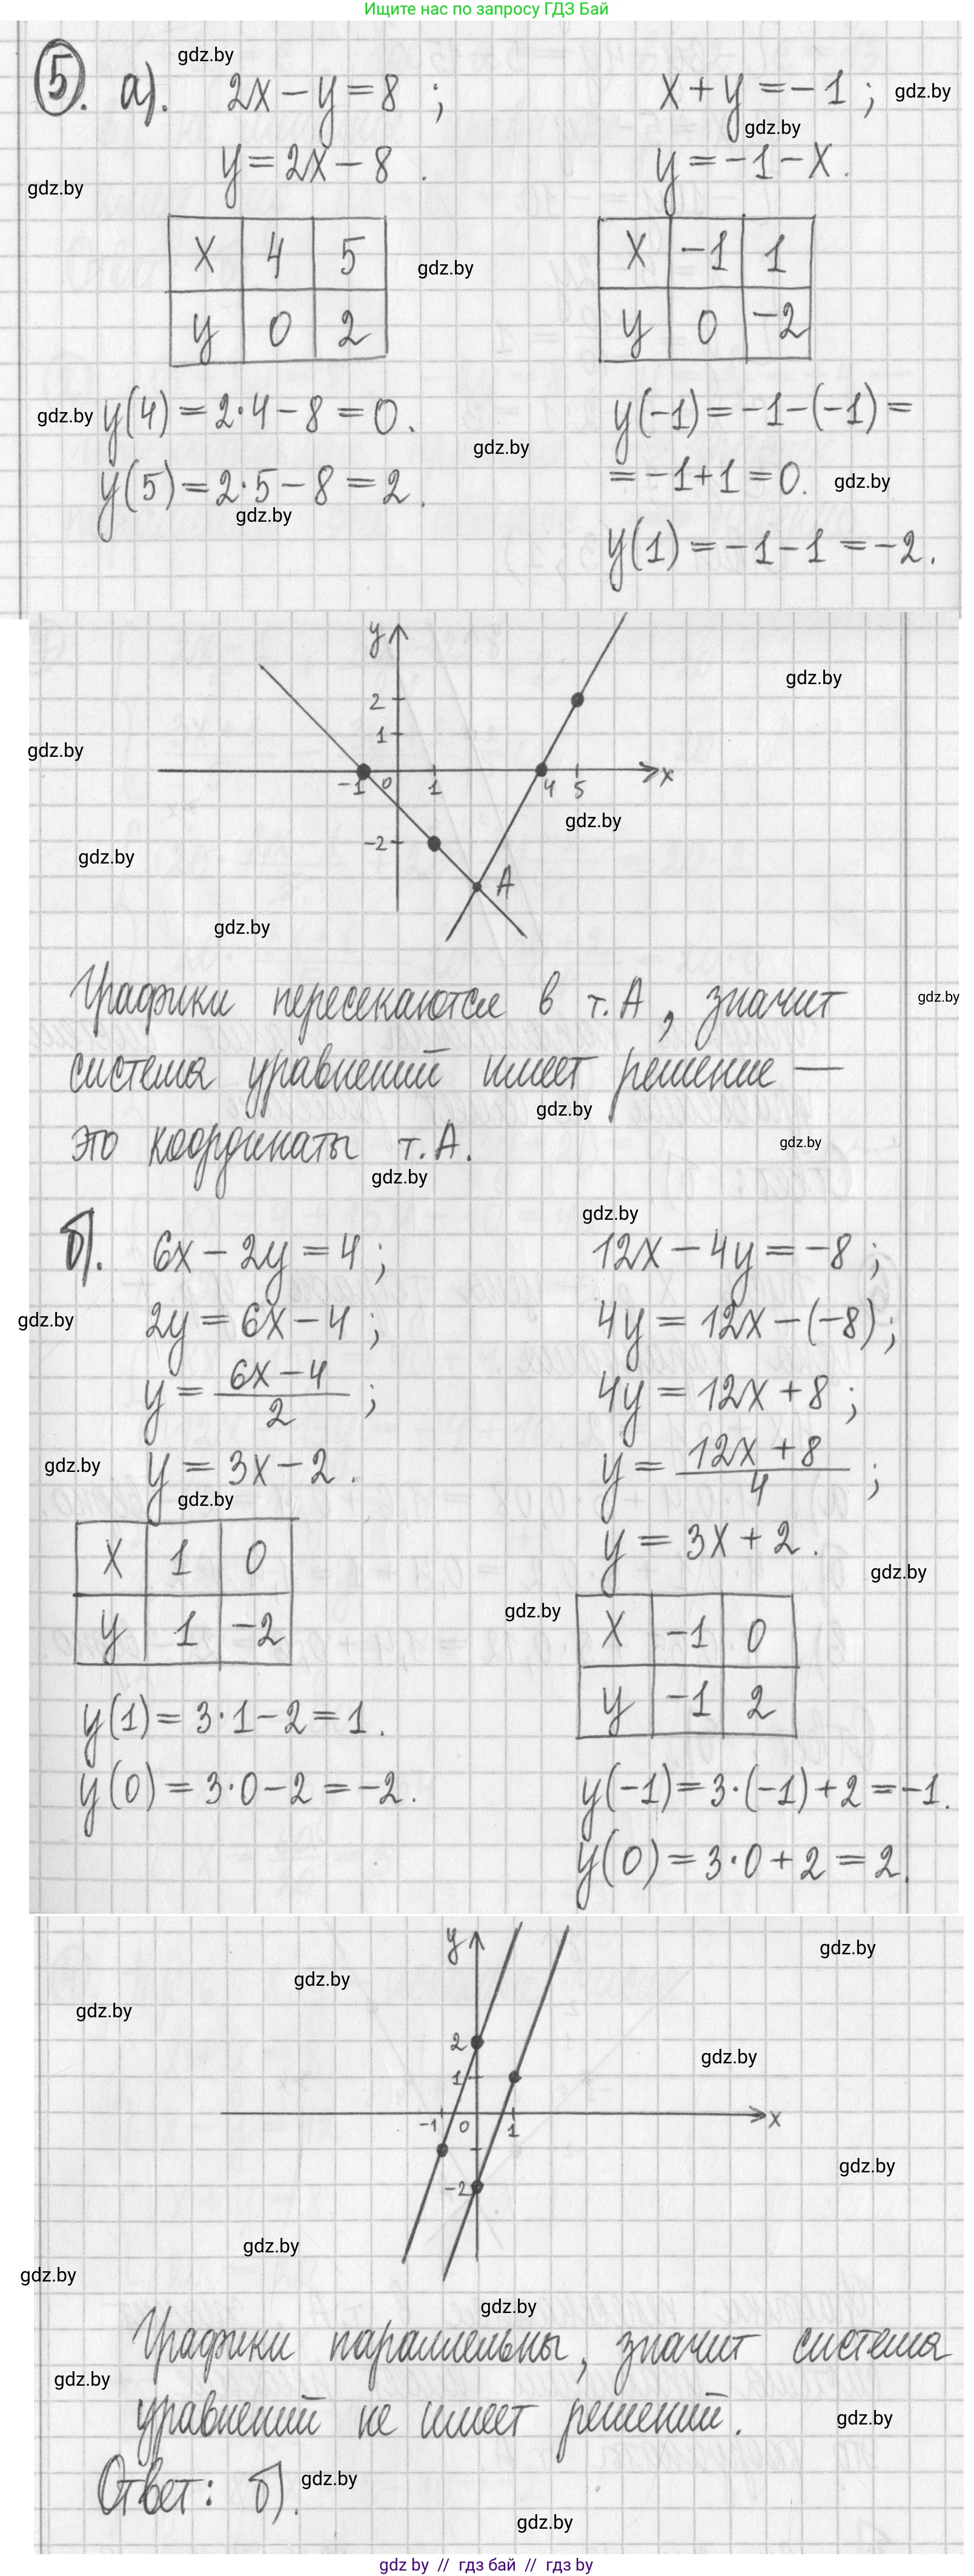 Ищите нас по запросу ГДЗ Бай
gdz.by
5. а). 2x − y = 8 ; x + y = −1 ; gdz.by
gdz.by
y = 2x − 8 . y = −1 − x .
gdz.by
x 4 5 x −1 1
gdz.by
y 0 2 y 0 −2
gdz.by y(4) = 2·4 − 8 = 0. y(−1) = −1 − (−1) =
gdz.by
y(5) = 2·5 − 8 = 2. = −1 + 1 = 0. gdz.by
gdz.by
y(1) = −1 − 1 = −2.
y
gdz.by
2
1
gdz.by
−1 0 1 4 5 x
gdz.by
−2
gdz.by
A
gdz.by
Графики пересекаются в т. А, значит gdz.by
система уравнений имеет решение —
gdz.by
это координаты т. А. gdz.by
gdz.by
gdz.by
б). 6x − 2y = 4 ; 12x − 4y = −8 ;
gdz.by
2y = 6x − 4 ; 4y = 12x − (−8) ;
y = (6x − 4)/2 ; 4y = 12x + 8 ;
gdz.by
y = 3x − 2 . y = (12x + 8)/4 ;
gdz.by
y = 3x + 2 .
gdz.by
x 1 0
gdz.by
y 1 −2 x −1 0
y −1 2
y(1) = 3·1 − 2 = 1 .
y(0) = 3·0 − 2 = −2 . y(−1) = 3·(−1) + 2 = −1.
y(0) = 3·0 + 2 = 2.
y
gdz.by
gdz.by
gdz.by
2
gdz.by
1
−1 0 1 x
gdz.by
−2
gdz.by
gdz.by
gdz.by
Графики параллельны, значит система
gdz.by
уравнений не имеет решений.
gdz.by
Ответ: б). gdz.by
gdz.by
gdz by // гдз бай // гдз by